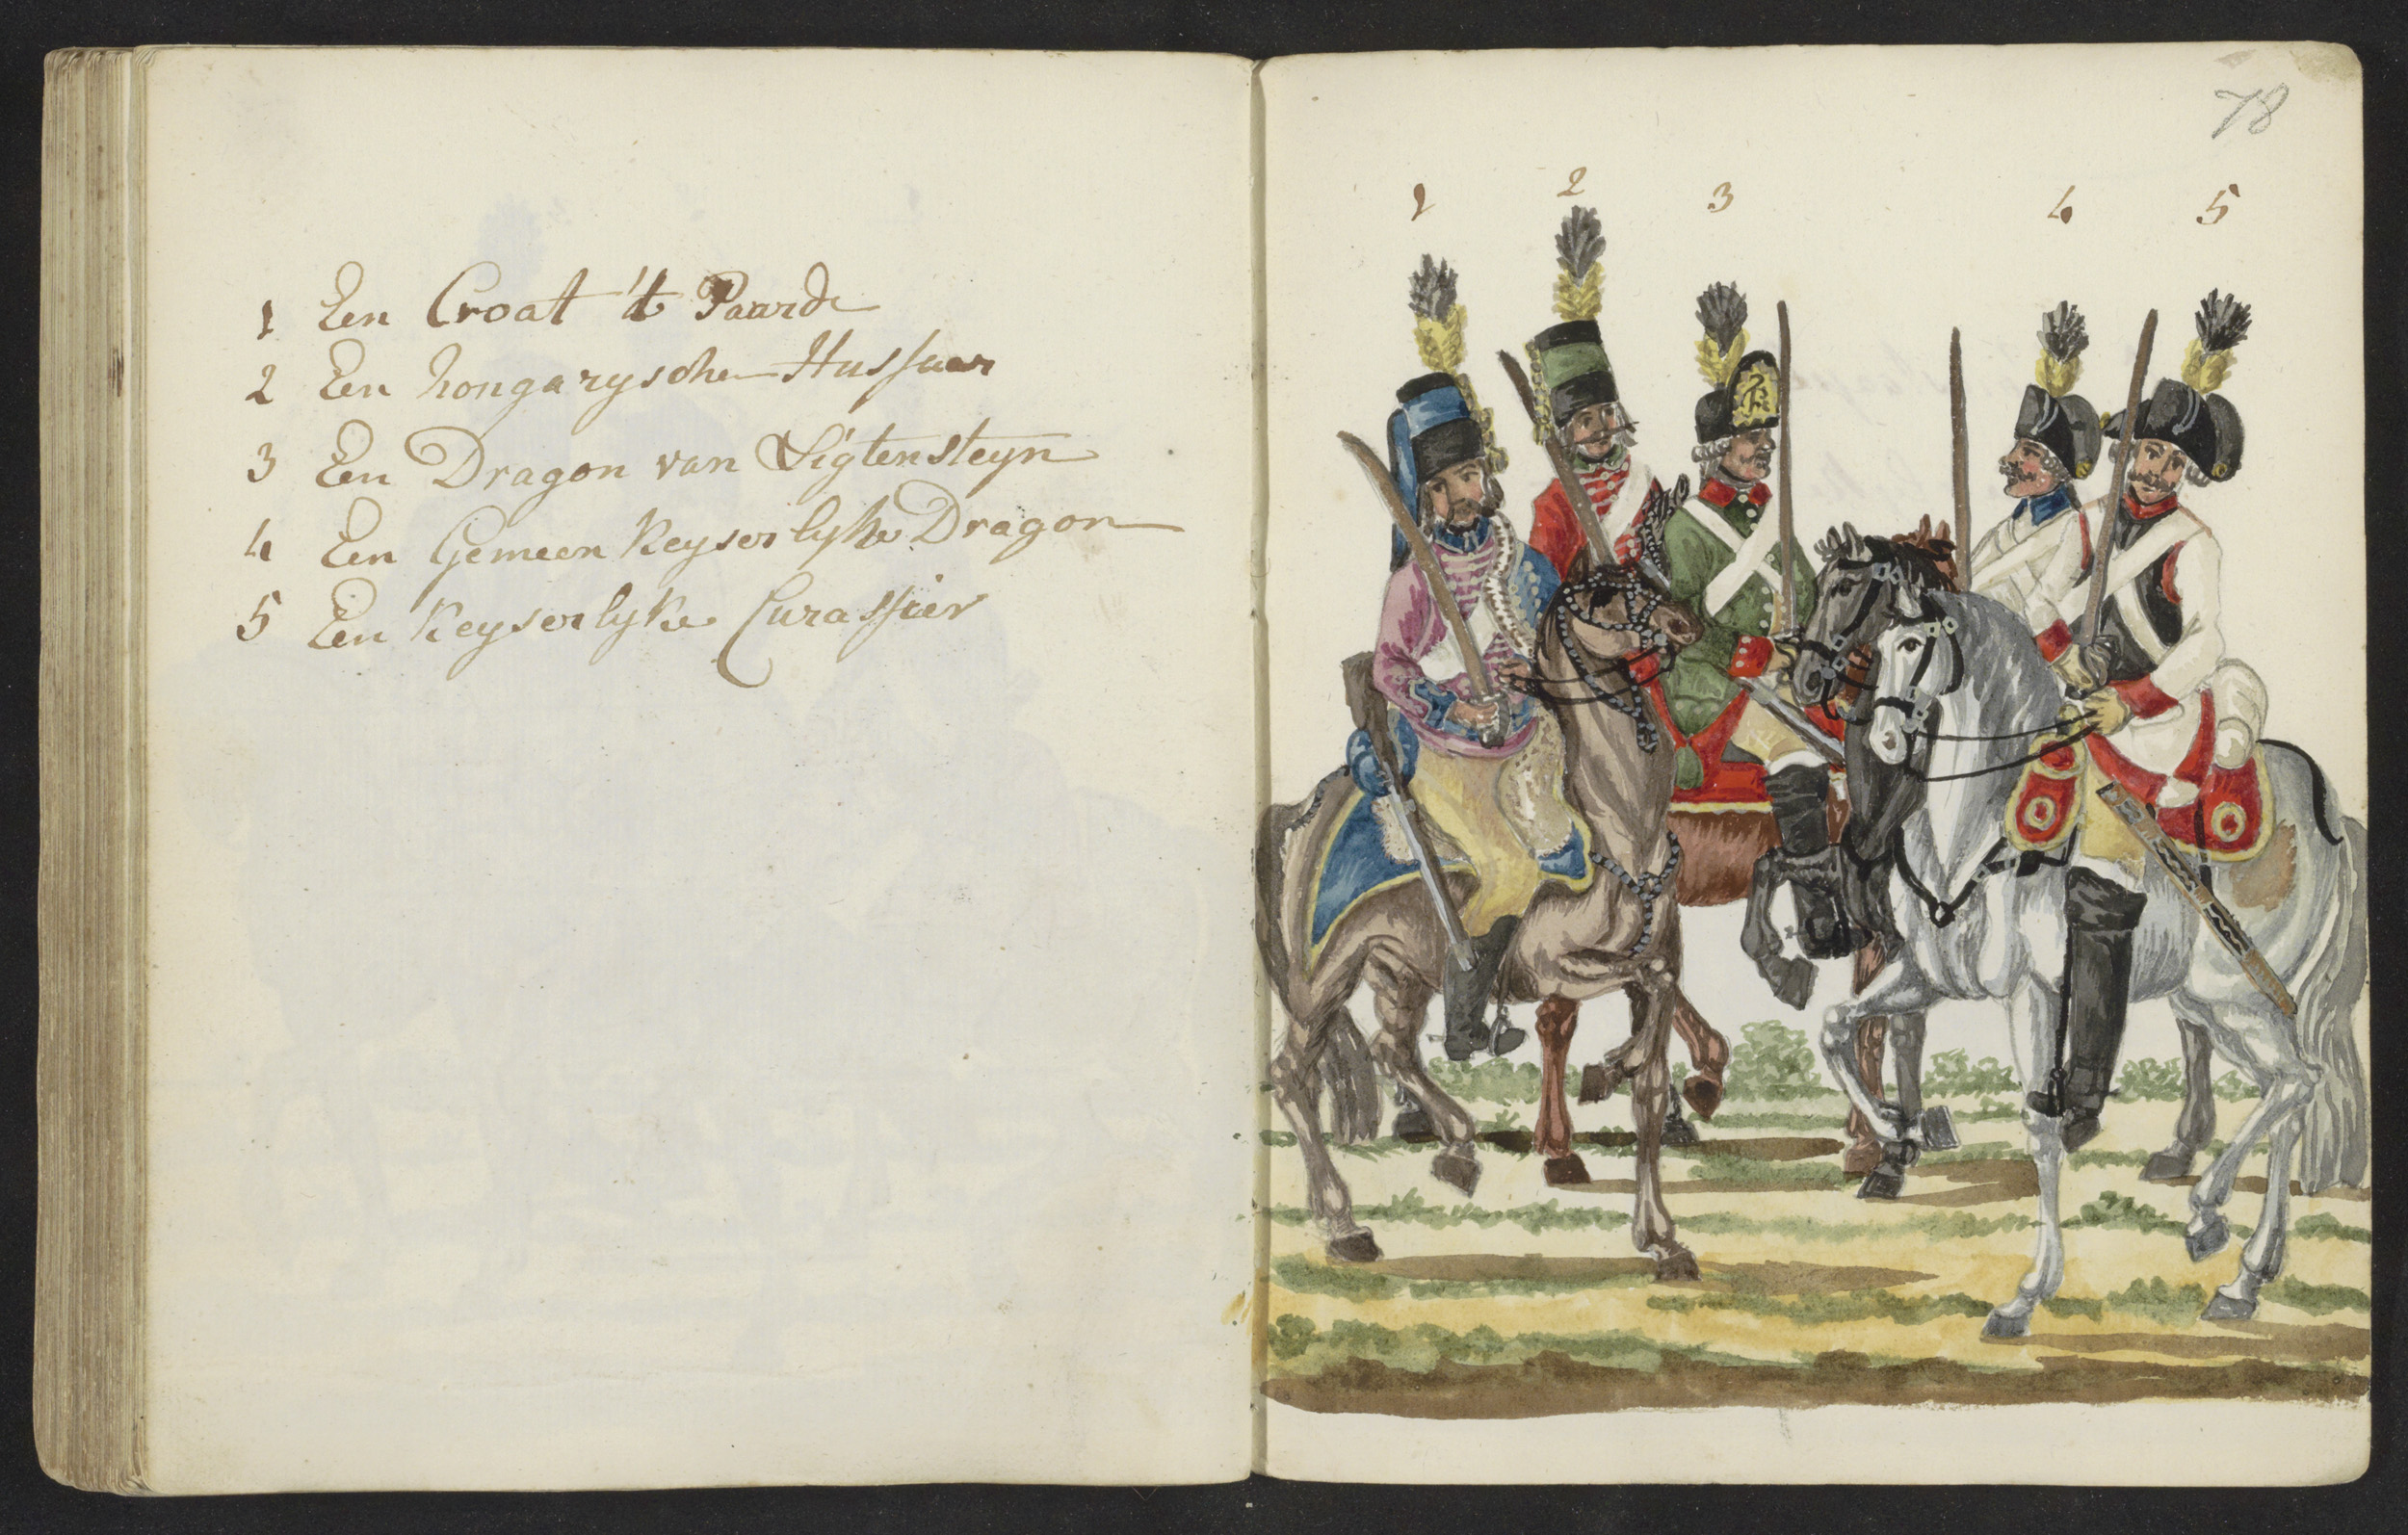 1 Een Croat 't Paarde
2 Een hongarysche Hussaar
3 Een Dragon van Ligtensteyn
4 Een Gemeen Keyserlyke Dragon
5 Een Keyserlyke Curassier
78
1 2 3 4 5